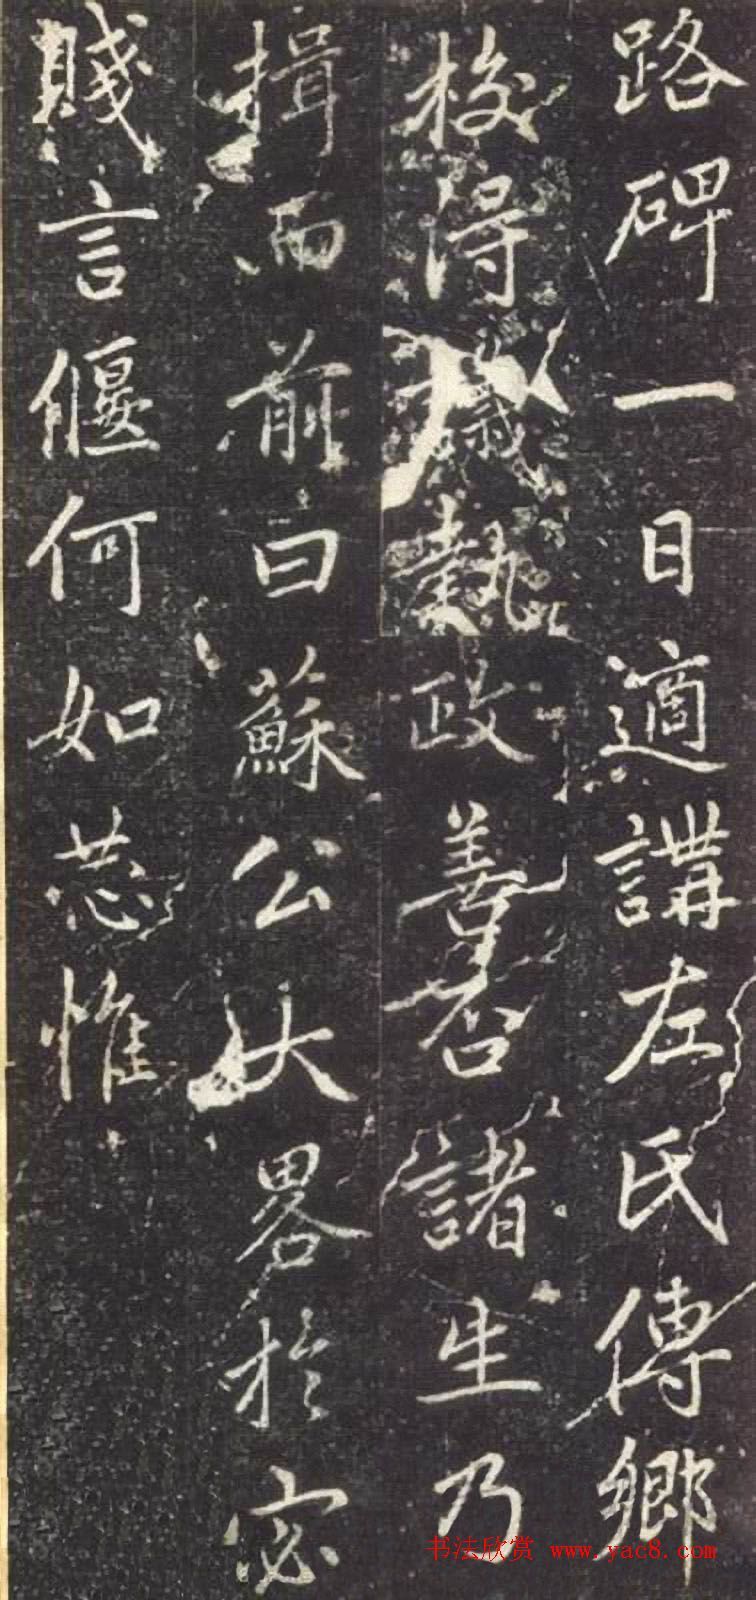 路碑一日適講左氏傳鄉
校得議執政善否諸生乃
揖而前曰蘇公大畧於宓
賤言偃何如恭惟
书法欣赏 www.yac8.com